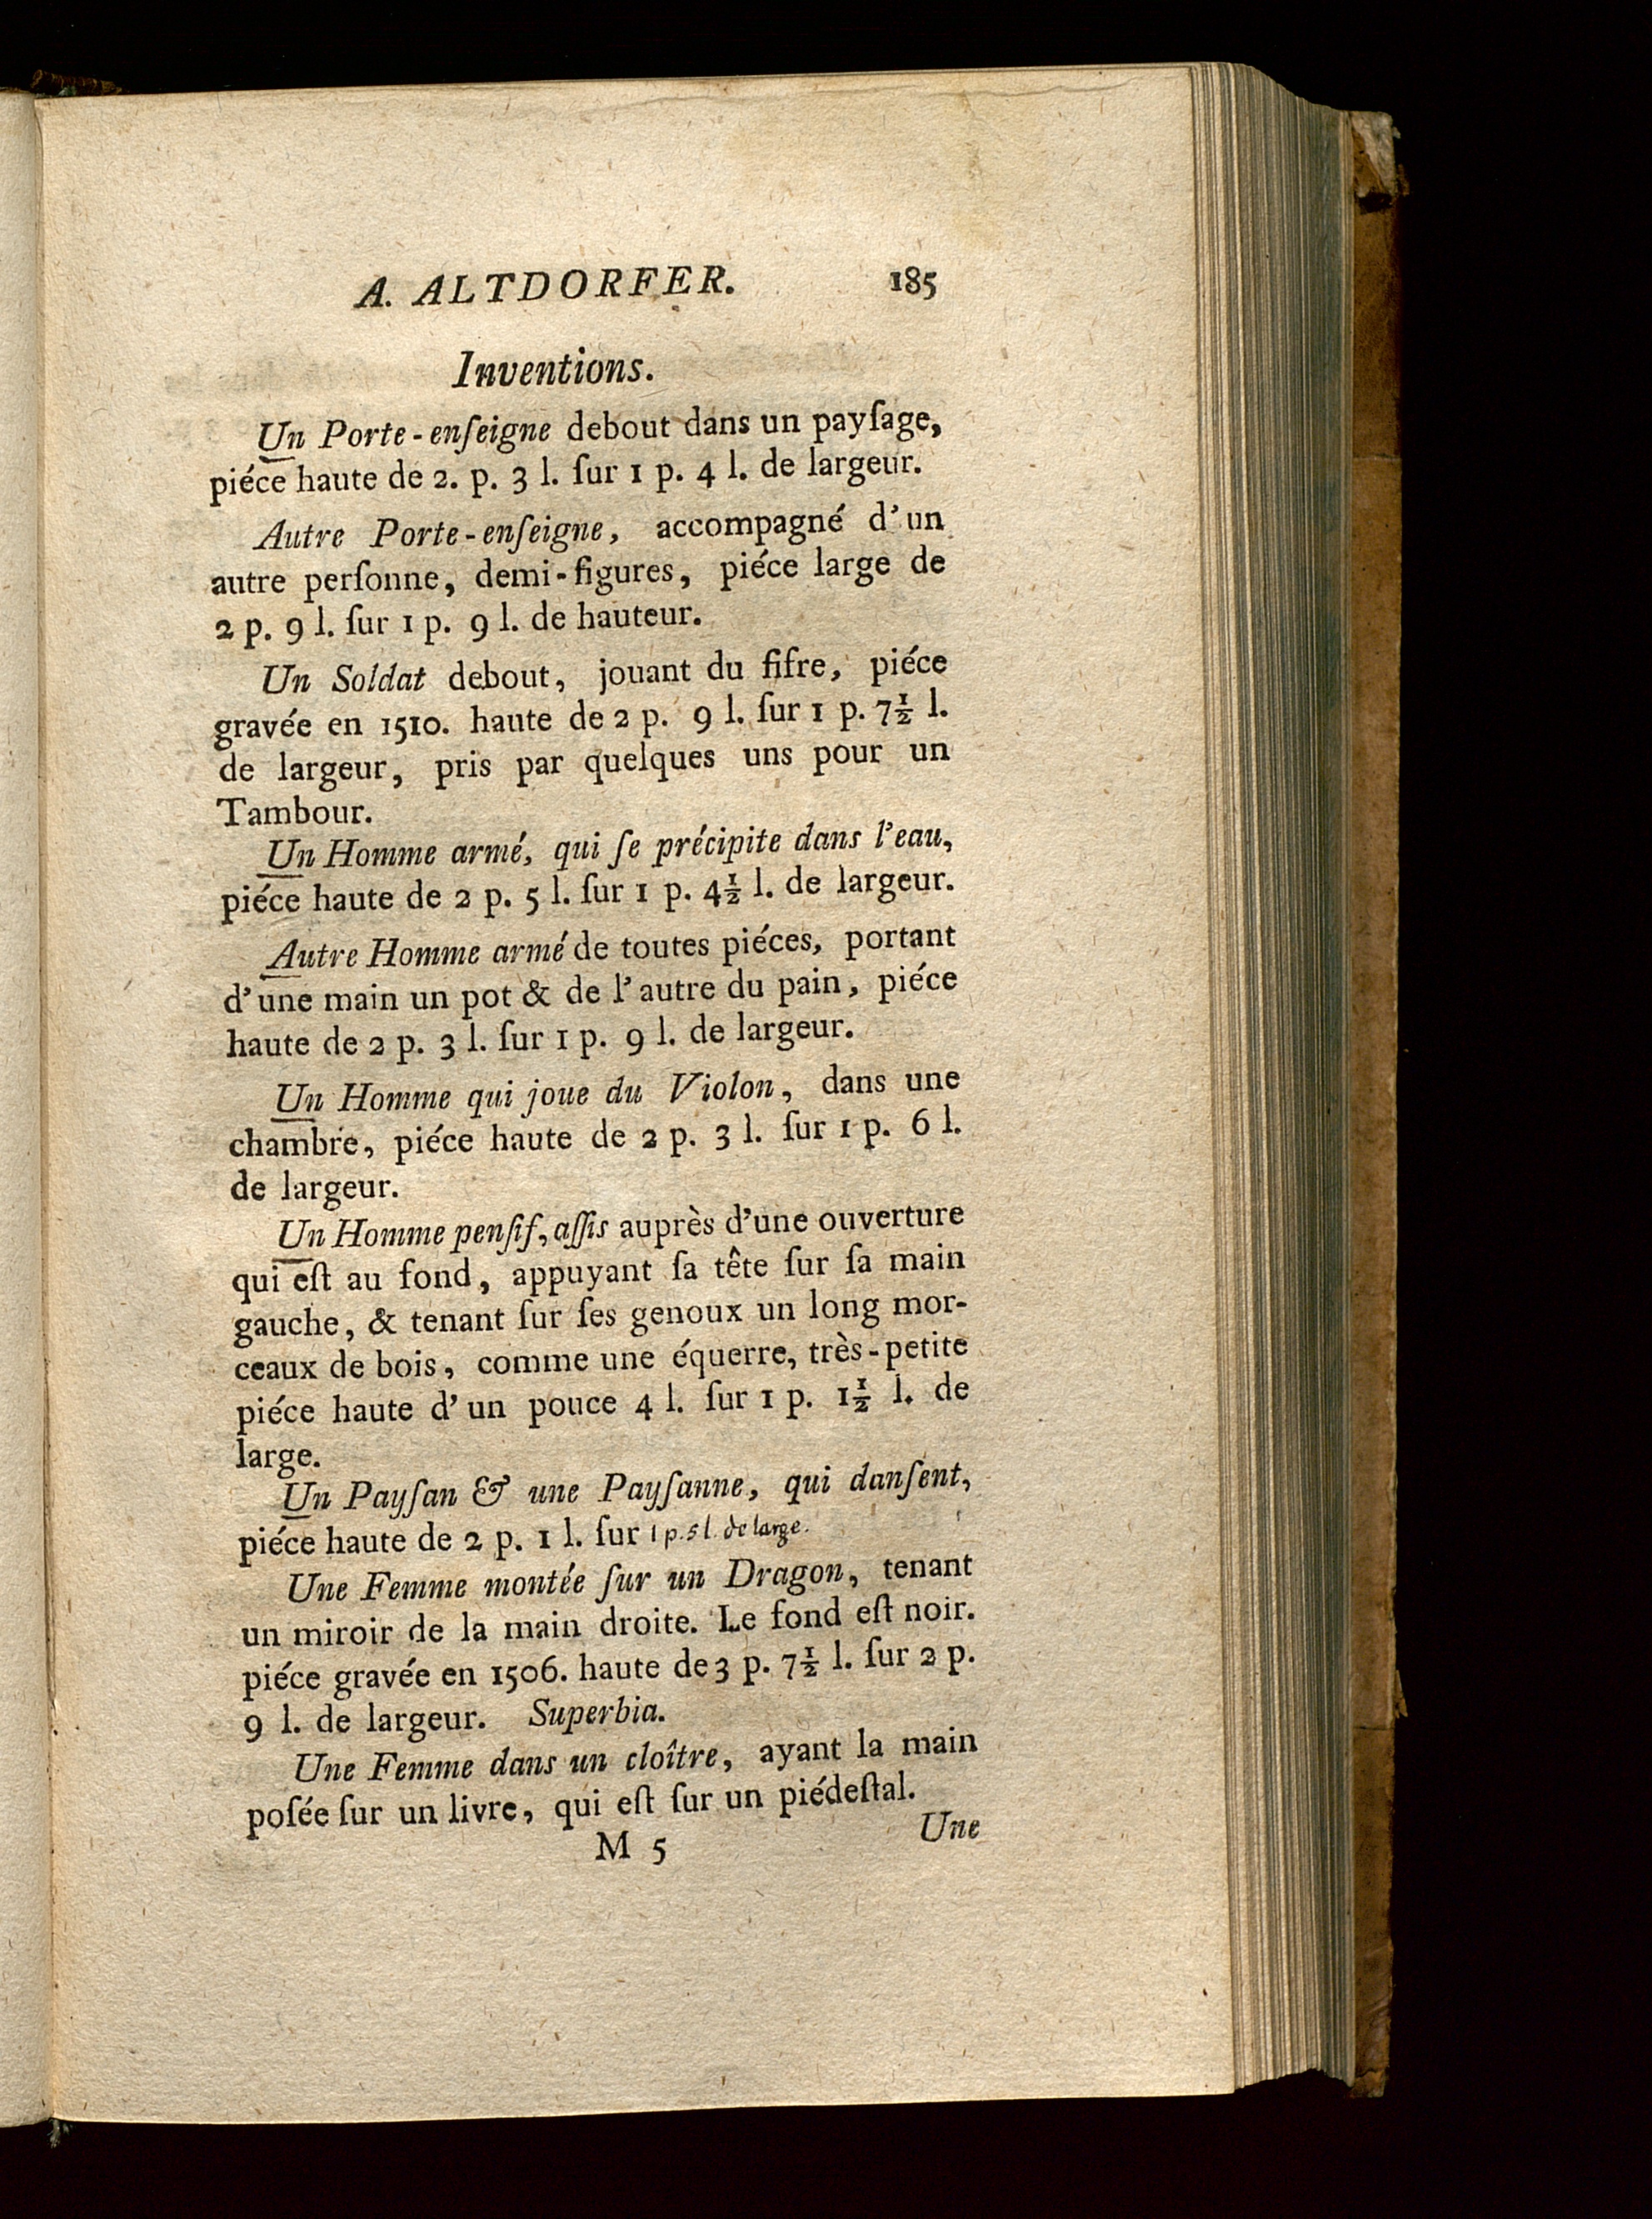 A. ALTDORFER. 185
Inventions.
Un Porte-enſeigne debout dans un payſage,
piéce haute de 2. p. 3 l. ſur 1 p. 4 l. de largeur.
Autre Porte-enſeigne, accompagné d'un
autre perſonne, demi-figures, piéce large de
2 p. 9 l. ſur 1 p. 9 l. de hauteur.
Un Soldat debout, jouant du fifre, piéce
gravée en 1510. haute de 2 p. 9 l. ſur 1 p. 7½ l.
de largeur, pris par quelques uns pour un
Tambour.
Un Homme armé, qui ſe précipite dans l'eau,
piéce haute de 2 p. 5 l. ſur 1 p. 4½ l. de largeur.
Autre Homme armé de toutes piéces, portant
d'une main un pot & de l'autre du pain, piéce
haute de 2 p. 3 l. ſur 1 p. 9 l. de largeur.
Un Homme qui joue du Violon, dans une
chambre, piéce haute de 2 p. 3 l. ſur 1 p. 6 l.
de largeur.
Un Homme penſif, aſſis auprès d'une ouverture
qui eſt au fond, appuyant ſa tête ſur ſa main
gauche, & tenant ſur ſes genoux un long mor-
ceaux de bois, comme une équerre, très-petite
piéce haute d'un pouce 4 l. ſur 1 p. 1½ l. de
large.
Un Payſan & une Payſanne, qui danſent,
piéce haute de 2 p. 1 l. ſur 1 p. 5 l. de large.
Une Femme montée ſur un Dragon, tenant
un miroir de la main droite. Le fond eſt noir.
piéce gravée en 1506. haute de 3 p. 7½ l. ſur 2 p.
9 l. de largeur. Superbia.
Une Femme dans un cloître, ayant la main
poſée ſur un livre, qui eſt ſur un piédeſtal.
M 5 Une